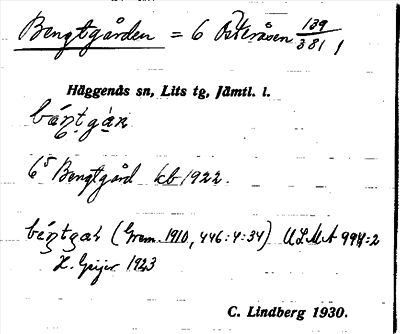 Bengtgården = 6 Österåsen 139/381,
Häggenås sn, Lits tg, Jämtl. l.
béŋtgàɴ
6⁵ Bengtgård kb 1922.
béŋtgaɴ (Grem. 1910, 446:4:34) ULMA 994:2
H. Geijer 1923
C. Lindberg 1930.